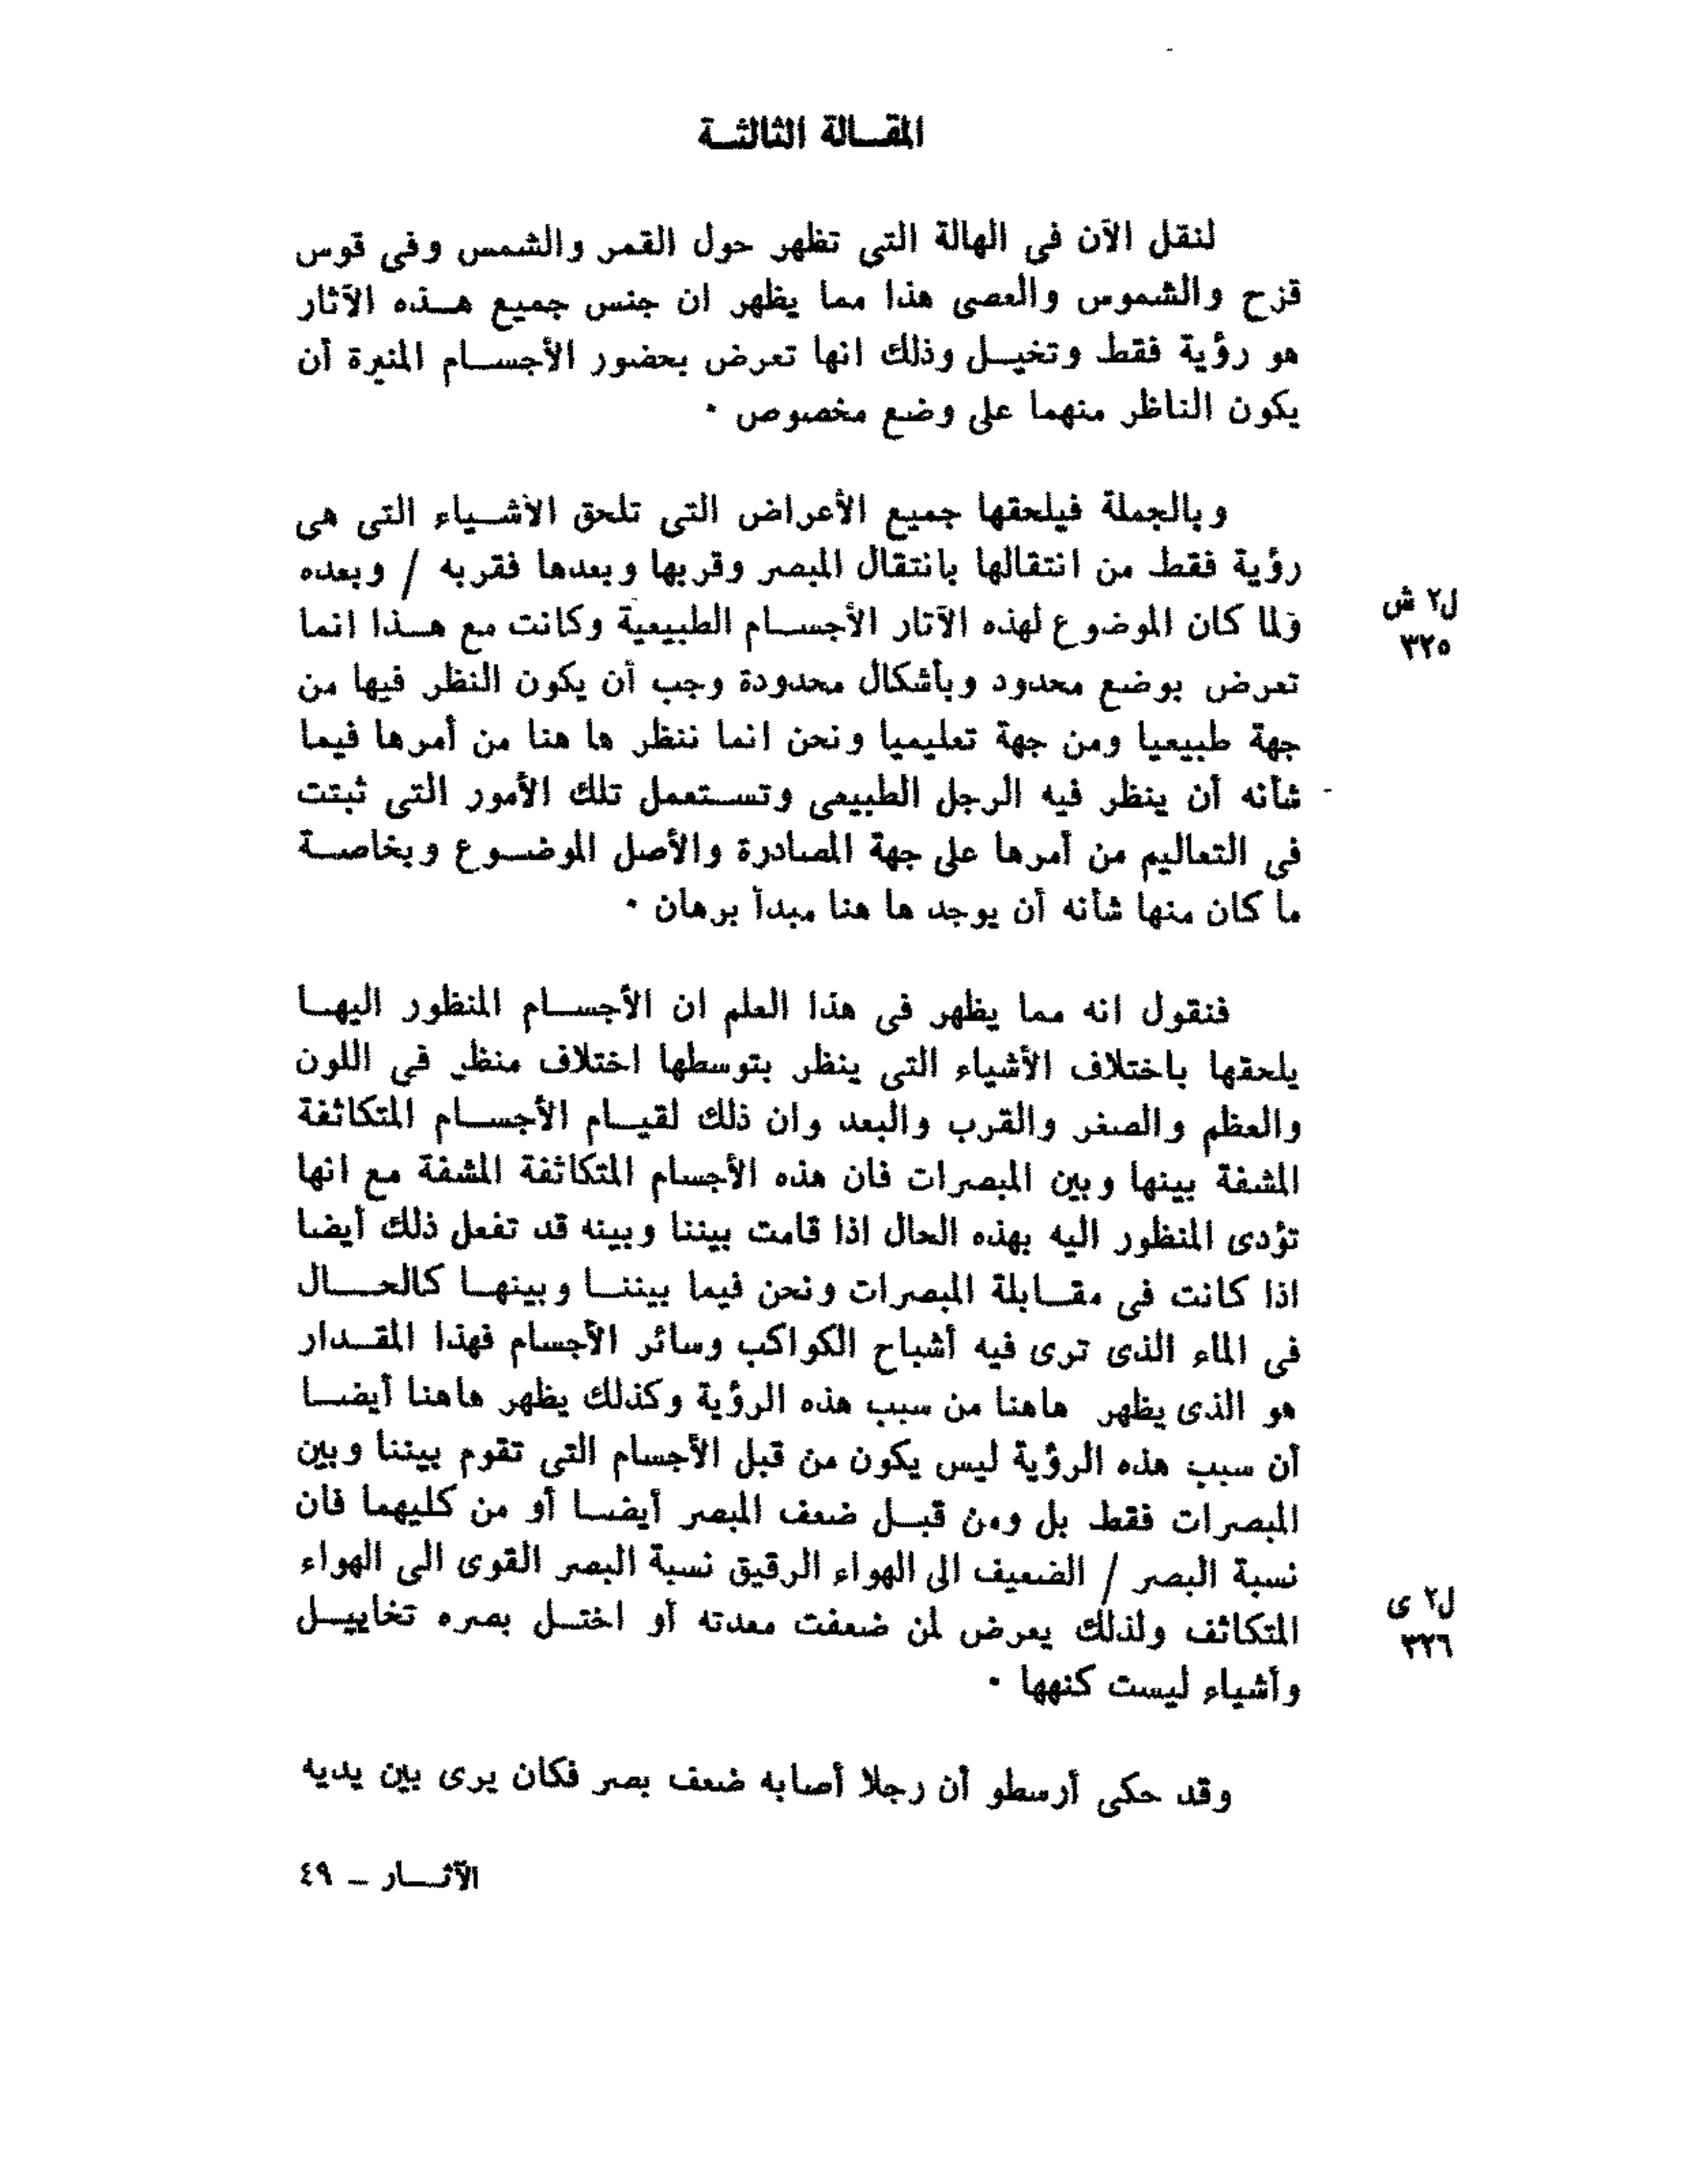 المقالة الثالثة
لنقل الآن فى الهالة التى تظهر حول القمر والشمس وفى قوس
قزح والشموس والعصى هذا مما يظهر ان جنس جميع هذه الآثار
هو رؤية فقط وتخيل وذلك انها تعرض بحضور الأجسام المنيرة أن
يكون الناظر منهما على وضع مخصوص ٠
وبالجملة فيلحقها جميع الأعراض التى تلحق الأشياء التى هى
رؤية فقط من انتقالها بانتقال المبصر وقربها وبعدها فقربه / وبعده
ل٢ ش
٣٢٥
ولما كان الموضوع لهذه الآثار الأجسام الطبيعية وكانت مع هذا انما
تعرض بوضع محدود وبأشكال محدودة وجب أن يكون النظر فيها من
جهة طبيعيا ومن جهة تعليميا ونحن انما ننظر ها هنا من أمرها فيما
شأنه أن ينظر فيه الرجل الطبيعى وتستعمل تلك الأمور التى ثبتت
فى التعاليم من أمرها على جهة المصادرة والأصل الموضوع وبخاصة
ما كان منها شأنه أن يوجد ها هنا مبدأ برهان ٠
فنقول انه مما يظهر فى هذا العلم ان الأجسام المنظور اليها
يلحقها باختلاف الأشياء التى ينظر بتوسطها اختلاف منظر فى اللون
والعظم والصغر والقرب والبعد وان ذلك لقيام الأجسام المتكاثفة
المشفة بينها وبين المبصرات فان هذه الأجسام المتكاثفة المشفة مع انها
تؤدى المنظور اليه بهذه الحال اذا قامت بيننا وبينه قد تفعل ذلك أيضا
اذا كانت فى مقابلة المبصرات ونحن فيما بيننا وبينها كالحال
فى الماء الذى ترى فيه أشباح الكواكب وسائر الأجسام فهذا المقدار
هو الذى يظهر هاهنا من سبب هذه الرؤية وكذلك يظهر هاهنا أيضا
أن سبب هذه الرؤية ليس يكون من قبل الأجسام التى تقوم بيننا وبين
المبصرات فقط بل ومن قبل ضعف المبصر أيضا أو من كليهما فان
نسبة البصر / الضعيف الى الهواء الرقيق نسبة البصر القوى الى الهواء
ل٢ ى
٣٢٦
المتكاثف ولذلك يعرض لمن ضعفت معدته أو اختل بصره تخاييل
وأشياء ليست كنهها ٠
وقد حكى أرسطو أن رجلا أصابه ضعف بصر فكان يرى بين يديه
الآثار - ٤٩